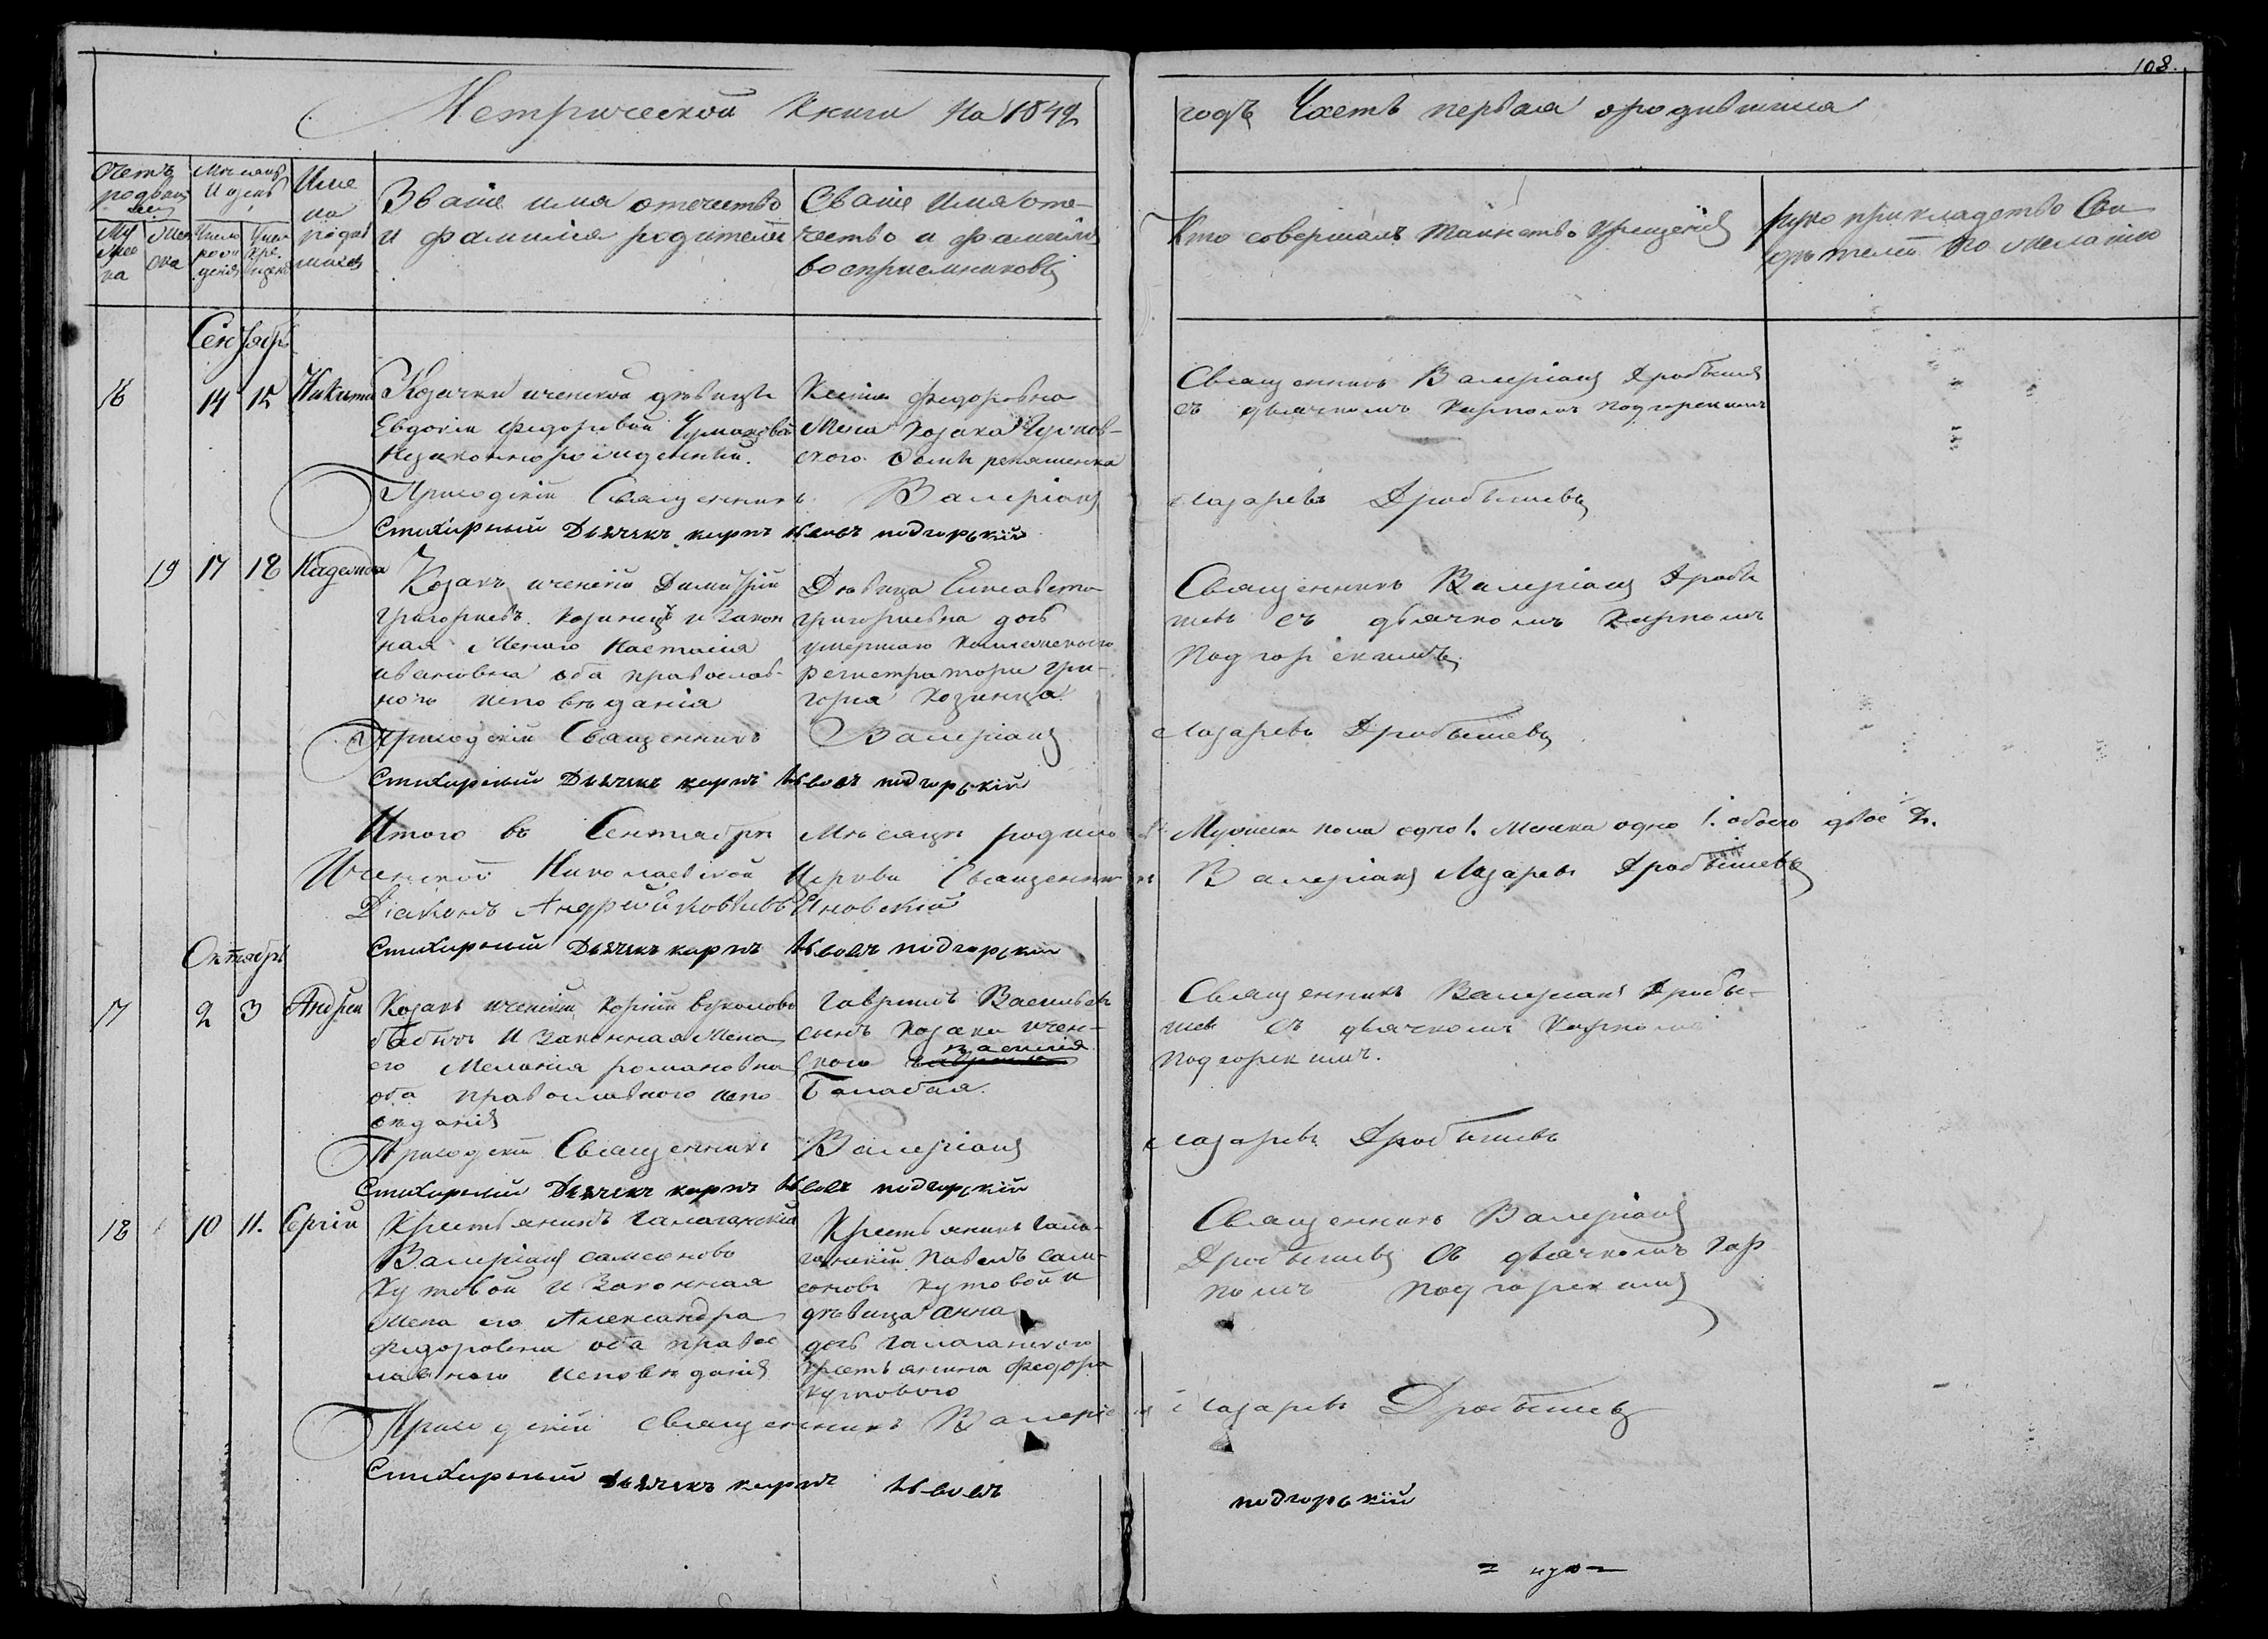 108.
Метрической Книги На 1842 годъ Часть первая ородившихся
Счетъ родивш
Мѣсяцъ и день
Имена родив
Званіе имя отечество и фамилія родителей
Сваніе Имя отечество и фамилія воспріемниковъ
Кто совершалъ таинство крещенія
рукоприкладство Свидѣтелей по желанію
Сентябрь
16 14 15 Никита
Козачки иченской дѣвицы
Евдокіи Федоровой Чумаковой
Незаконнорожденный.
Ксенія Федоровна
Жена Козака
Священникъ Валеріанъ Дробышев
съ дьячкомъ Карпомъ подгорскимъ
Приходскій Священникъ Валеріанъ Лазаревъ Дробышевъ
Стихарный Дьячекъ карпъ подгорьскій
19 17 18
Козакъ иченскій Димитрій
Григорьевъ Козинецъ и закон
ная Жена его
ивановна оба православ-
ного исповѣданія
Дѣвица Елисавета
григорьевна дочь
умершаго колежского
регистратора Гри-
горія Козинца
Священникъ Валеріанъ Дробы
шевъ съ дьячкомъ Карпомъ
Подгорскимъ
Приходскій Священникъ Валеріанъ Лазаревъ Дробышевъ
Стихарный Дьячекъ карпъ подгорьскій
Итого въ Сентябрѣ Мѣсяцѣ родило Мужеска пола одно 1. Женска одно 1. обоего двое 2.
Иченской Николаевской Церкви Священникъ Валеріанъ Лазаревъ Дробышевъ
Діаконъ Андрей
Стихарный Дьячекъ карпъ подгорскій
Октябрь
17 2 3 Андрей
Козакъ иченскій Корній
и Законная Жена
его Меланія романовна
оба православного испо
вѣданія
Гавріилъ Васильев
сынъ Козака ичен-
ского Василія
Балабая.
Священникъ Валеріанъ Дробы-
шев съ дьячкомъ Карпомъ
Подгорскимъ.
Приходскій Священникъ Валеріанъ Лазаревъ Дробышевъ
Стихарный Дьячекъ карпъ подгорьскій
18 10 11. Сергій
Крестьянинъ Галаганскій
Валеріанъ самсоновъ
Кутовой и Законная
Жена его Александра
Федоровна оба право
славного исповѣданія
Крестьянинъ Гала-
ганскій Павелъ Сам-
соновъ Кутовой и
дѣвица Анна
дочь галаганского
крестьянина Федора
Кутового
Священникъ Валеріанъ
Дробышевъ съ дьячкомъ Кар
помъ Подгорским
Приходскій Священникъ Валеріанъ Лазаревъ Дробышевъ
Стихарный Дьячекъ карпъ подгорьскій